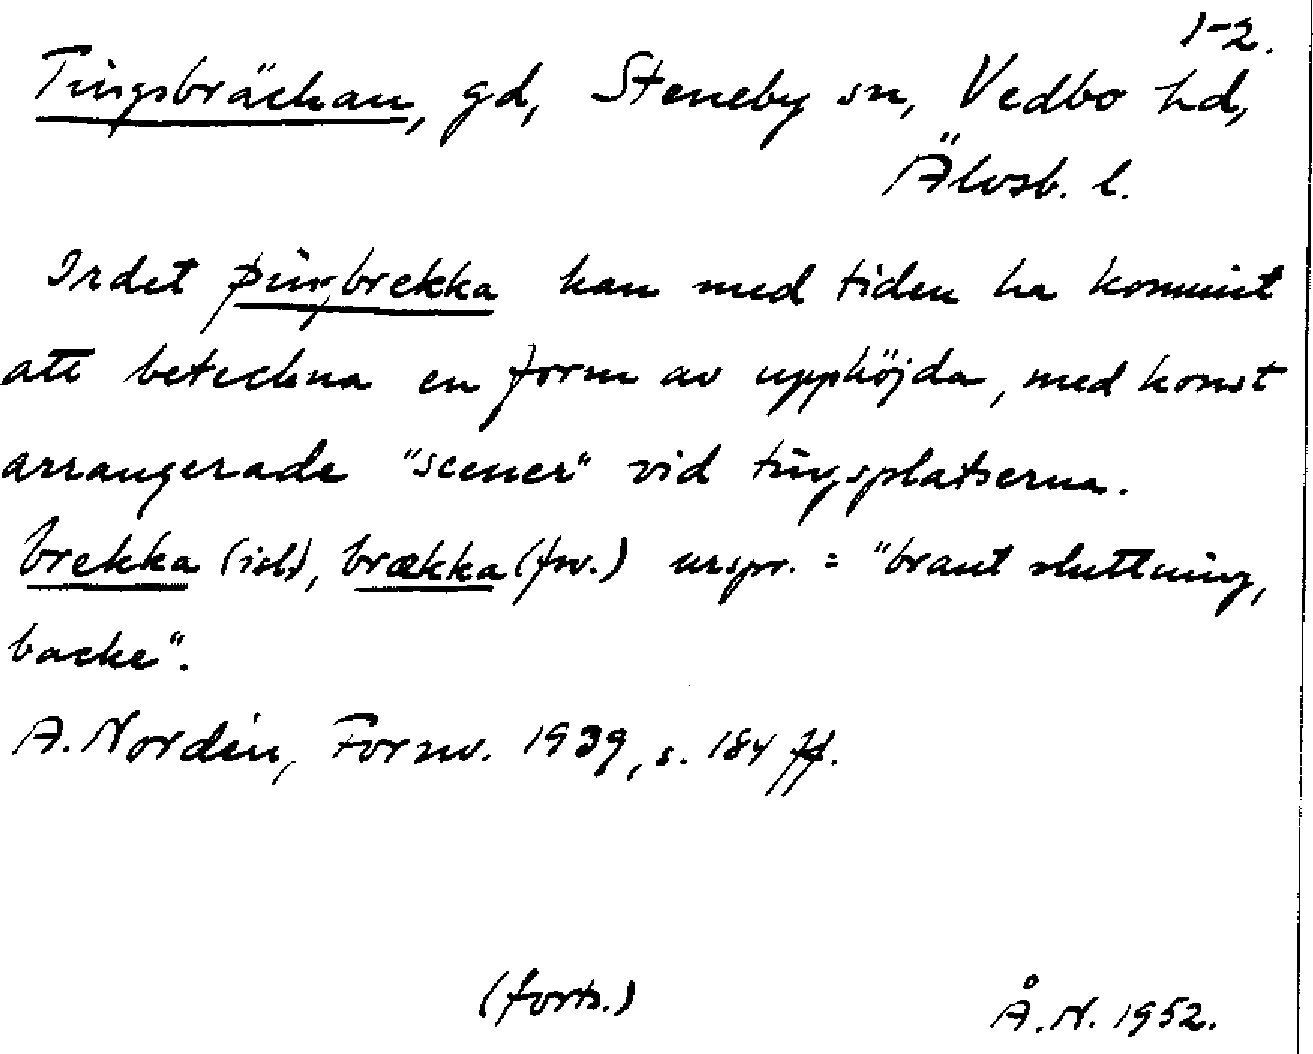 1-2.
Tingsbräckan, gd, Steneby sn, Vedbo hd,
Älvsb. l.
Ordet þingbrekka kan med tiden ha kommit
att beteckna en form av upphöjda, med konst
arrangerade "scener" vid tingsplatserna.
brekka (isl.), brækka (fsv.) urspr. = "brant sluttning,
backe".
A. Nordén, Fornv. 1939, s. 184 ff.
(forts.)
Å.N. 1952.